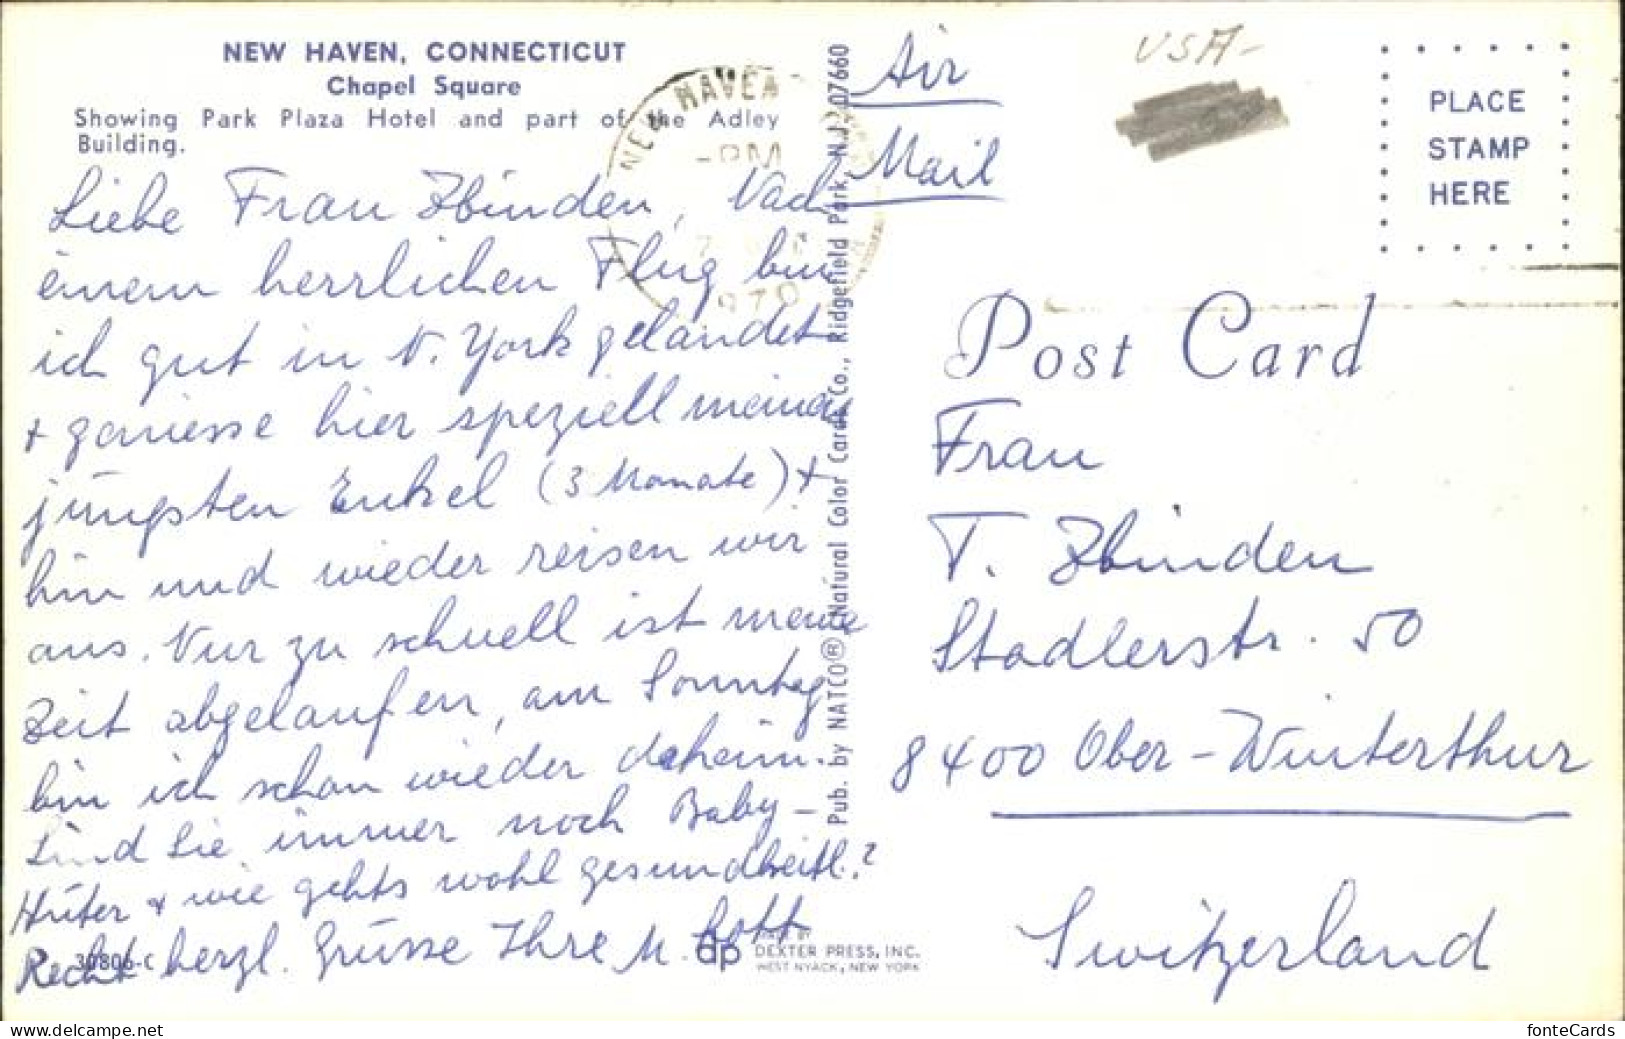 NEW HAVEN, CONNECTICUT
Chapel Square
Showing Park Plaza Hotel and part of the Adley
Building.
Liebe Frau Zbinden, Nach
einem herrlichen Flug bin
ich gut in N. York gelandet
+ geniesse hier speziell meinen
jüngsten Enkel (3 Monate) +
hin und wieder reisen wir
aus. Nur zu schnell ist meine
Zeit abgelaufen, am Sonntag
bin ich schon wieder daheim.
Sind Sie immer noch Baby-
Hüter + wie gehts wohl gesundheitl.?
Recht herzl. Grüsse Ihre M.
30806-C
NEW HAVEN
PM
1970
Pub. by NATCO® Natural Color Cards Co., Ridgefield Park, N.J. 07660
dp
MADE BY
DEXTER PRESS, INC.
WEST NYACK, NEW YORK
Air
Mail
USA-
PLACE
STAMP
HERE
Post Card
Frau
T. Zbinden
Stadlerstr. 50
8400 Ober-Winterthur
Switzerland
www.delcampe.net
fonteCards